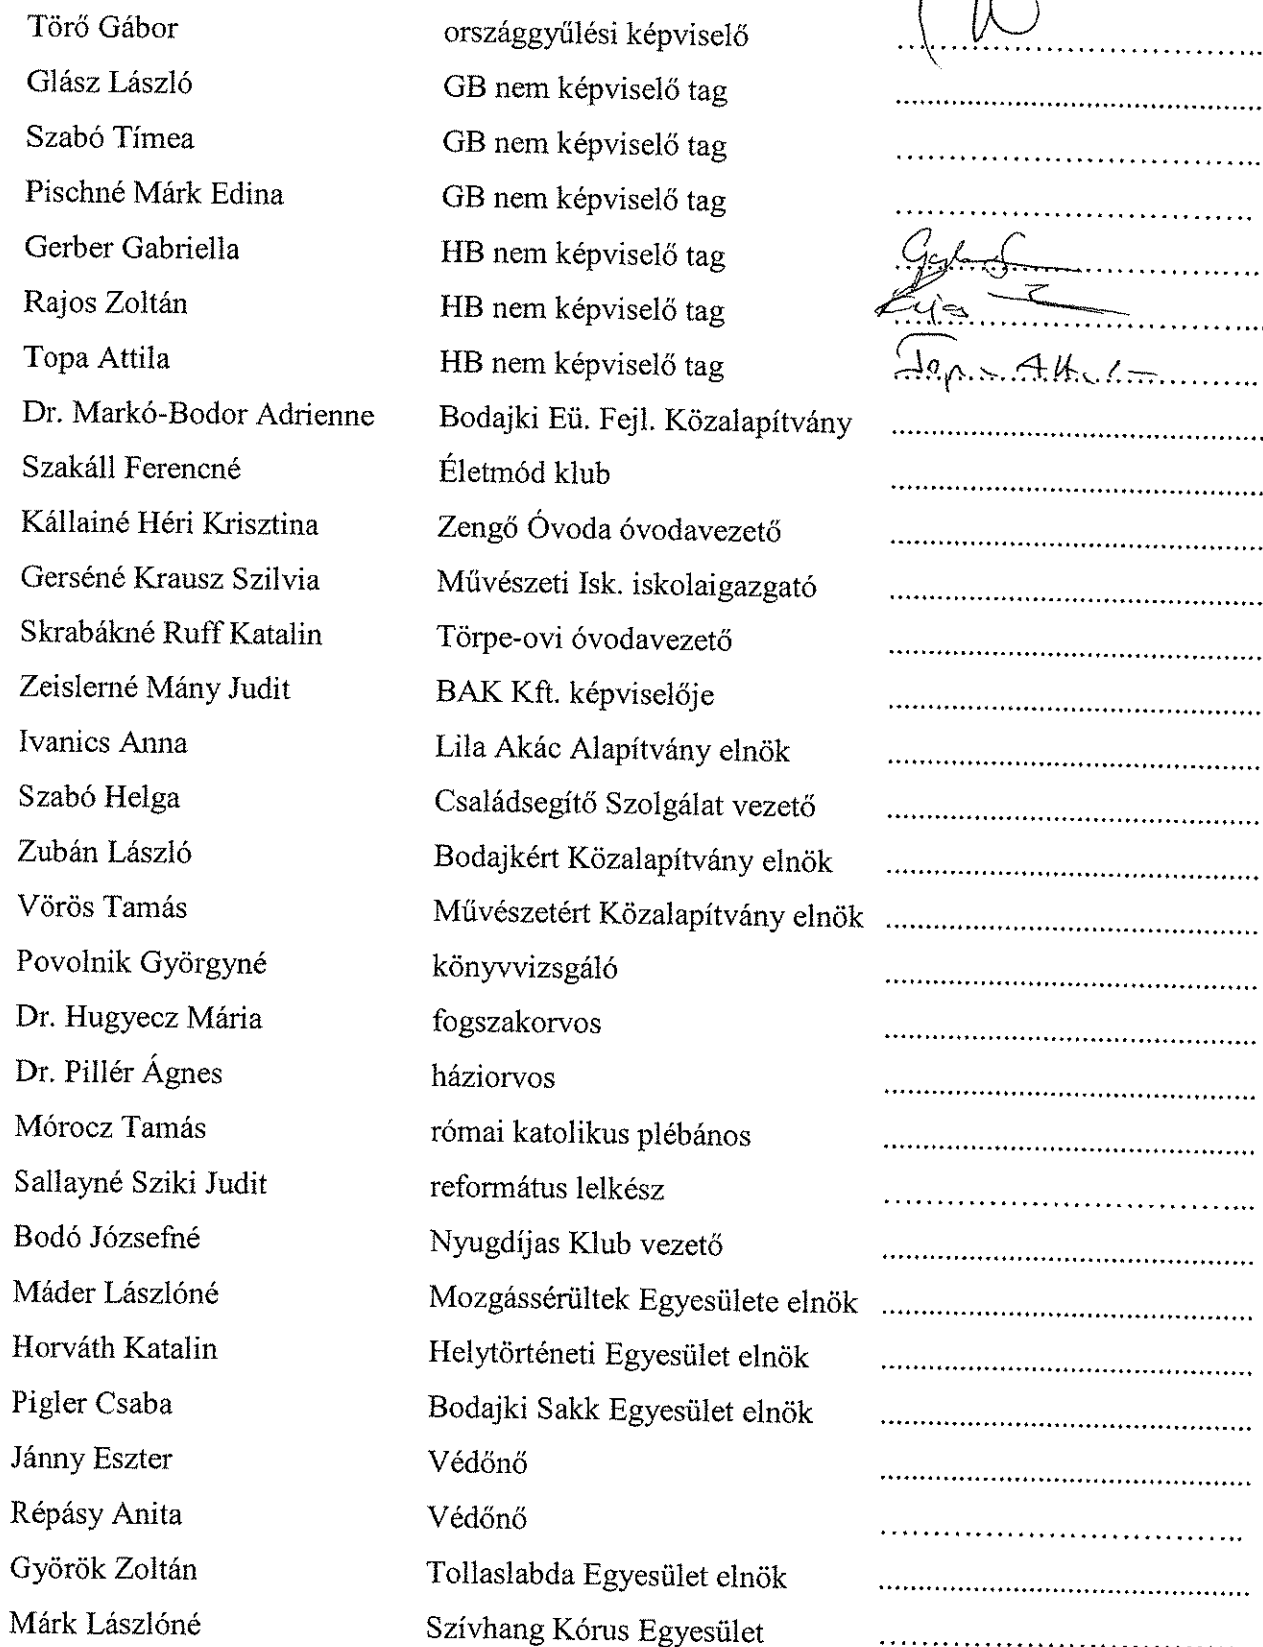 Törő Gábor országgyűlési képviselő
Glász László GB nem képviselő tag
Szabó Tímea GB nem képviselő tag
Pischné Márk Edina GB nem képviselő tag
Gerber Gabriella HB nem képviselő tag
Rajos Zoltán HB nem képviselő tag
Topa Attila HB nem képviselő tag Topa Attila
Dr. Markó-Bodor Adrienne Bodajki Eü. Fejl. Közalapítvány
Szakáll Ferencné Életmód klub
Kállainé Héri Krisztina Zengő Óvoda óvodavezető
Gerséné Krausz Szilvia Művészeti Isk. iskolaigazgató
Skrabákné Ruff Katalin Törpe-ovi óvodavezető
Zeislerné Mány Judit BAK Kft. képviselője
Ivanics Anna Lila Akác Alapítvány elnök
Szabó Helga Családsegítő Szolgálat vezető
Zubán László Bodajkért Közalapítvány elnök
Vörös Tamás Művészetért Közalapítvány elnök
Povolnik Györgyné könyvvizsgáló
Dr. Hugyecz Mária fogszakorvos
Dr. Pillér Ágnes háziorvos
Mórocz Tamás római katolikus plébános
Sallayné Sziki Judit református lelkész
Bodó Józsefné Nyugdíjas Klub vezető
Máder Lászlóné Mozgássérültek Egyesülete elnök
Horváth Katalin Helytörténeti Egyesület elnök
Pigler Csaba Bodajki Sakk Egyesület elnök
Jánny Eszter Védőnő
Répásy Anita Védőnő
Györök Zoltán Tollaslabda Egyesület elnök
Márk Lászlóné Szívhang Kórus Egyesület